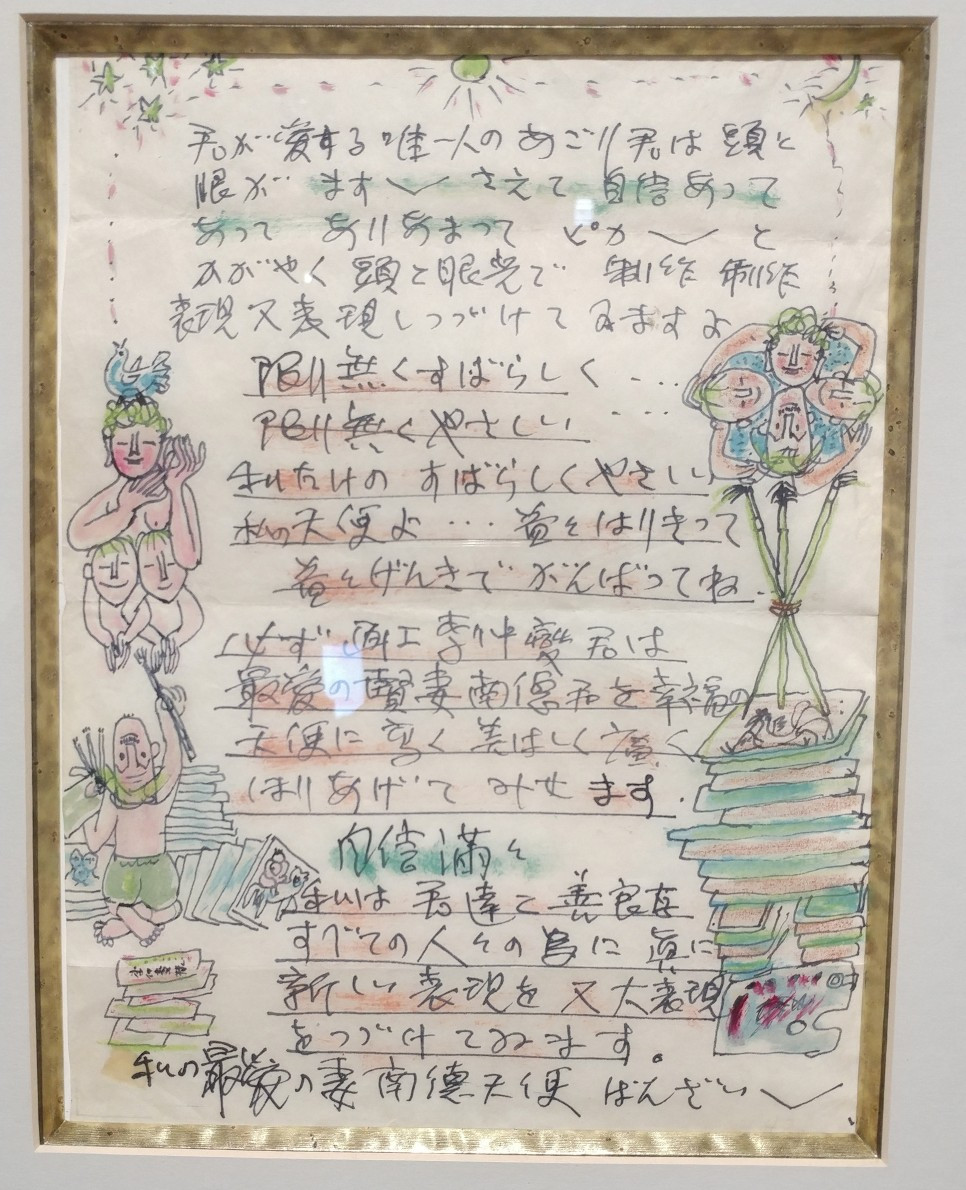 君が愛する唯一人のあごリ君は 頭と
眼が ますヽ〳〵 さえて 自信あって
あって ありあまって ピカ〳〵 と
かがやく 頭と眼光で 制作 制作
表現又表現しつづけてゐますよ
限り無くすばらしく ・・・
限り無くやさしい ・・・
私だけの すばらしくやさしい
私の天使よ ・・・ 益々はりきって
益々げんきで がんばってね.
必ず 画工李仲燮君は
最愛の賢妻南徳君を幸福の
天使に 高く 美はしく 廣く
ほりあげて みせ ます.
自信満々
私は 君達と 善良な
すべての人々の為に 真に
新しい 表現を 又 大表現
をつづけてゐます。
李仲燮
私の最愛の妻南徳天使 ばんざい〳〵